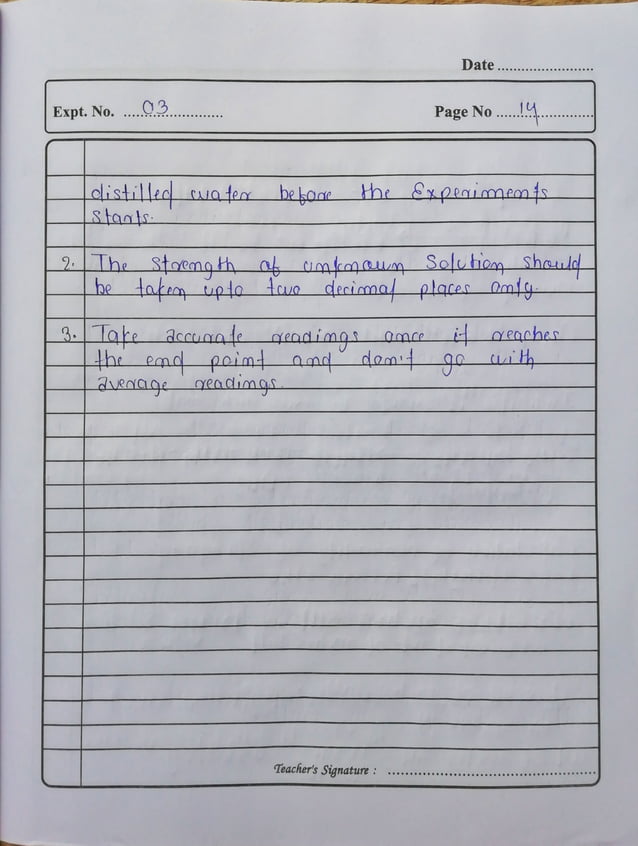 Date ........................
Expt. No. ....03.............. Page No .....14..............
distilled water before the Experiments
starts.
2. The Strength of unknown Solution should
be taken upto two decimal places only.
3. Take accurate readings once it reaches
the end point and don't go with
average readings.
Teacher's Signature : ....................................................